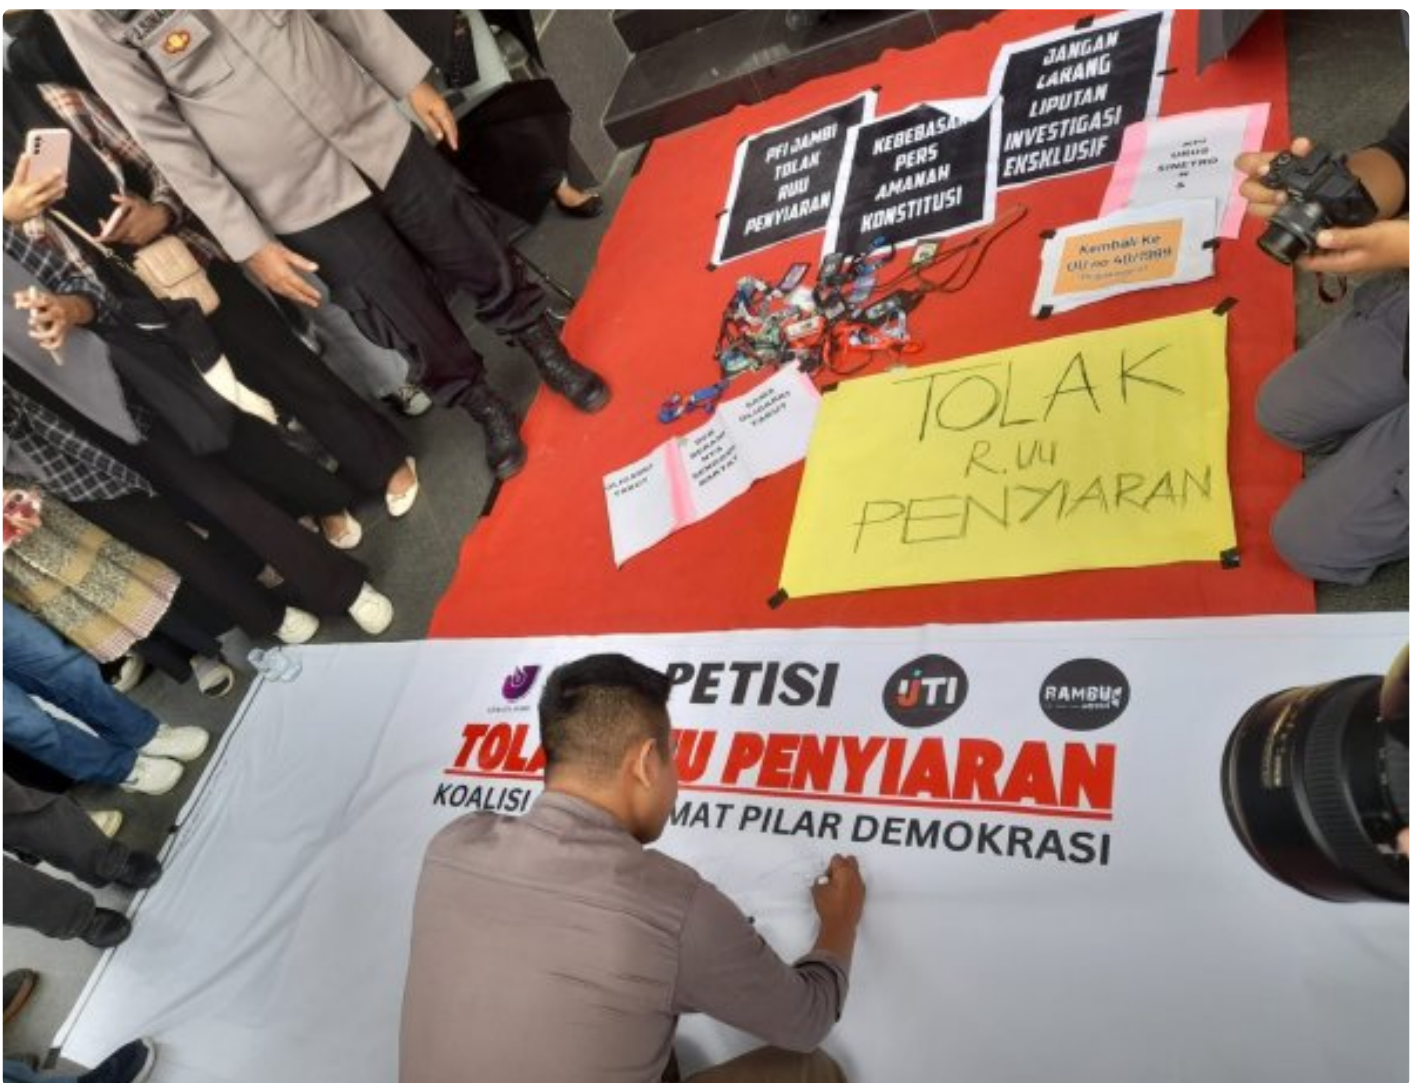 PFI JAMBI
TOLAK
RUU
PENYIARAN
KEBEBASAN
PERS
AMANAH
KONSTITUSI
JANGAN
LARANG
LIPUTAN
INVESTIGASI
EKSKLUSIF
KPI
URUS
SINETRO
N
Kembali Ke
UU no 40/1999
TOLAK
R.UU
PENYIARAN
OLIGARKI
TAKUT
SAMA
OLIGARKI
TAKUT
PETISI
IJTI
RAMBU
TOLA UU PENYIARAN
KOALISI MAT PILAR DEMOKRASI